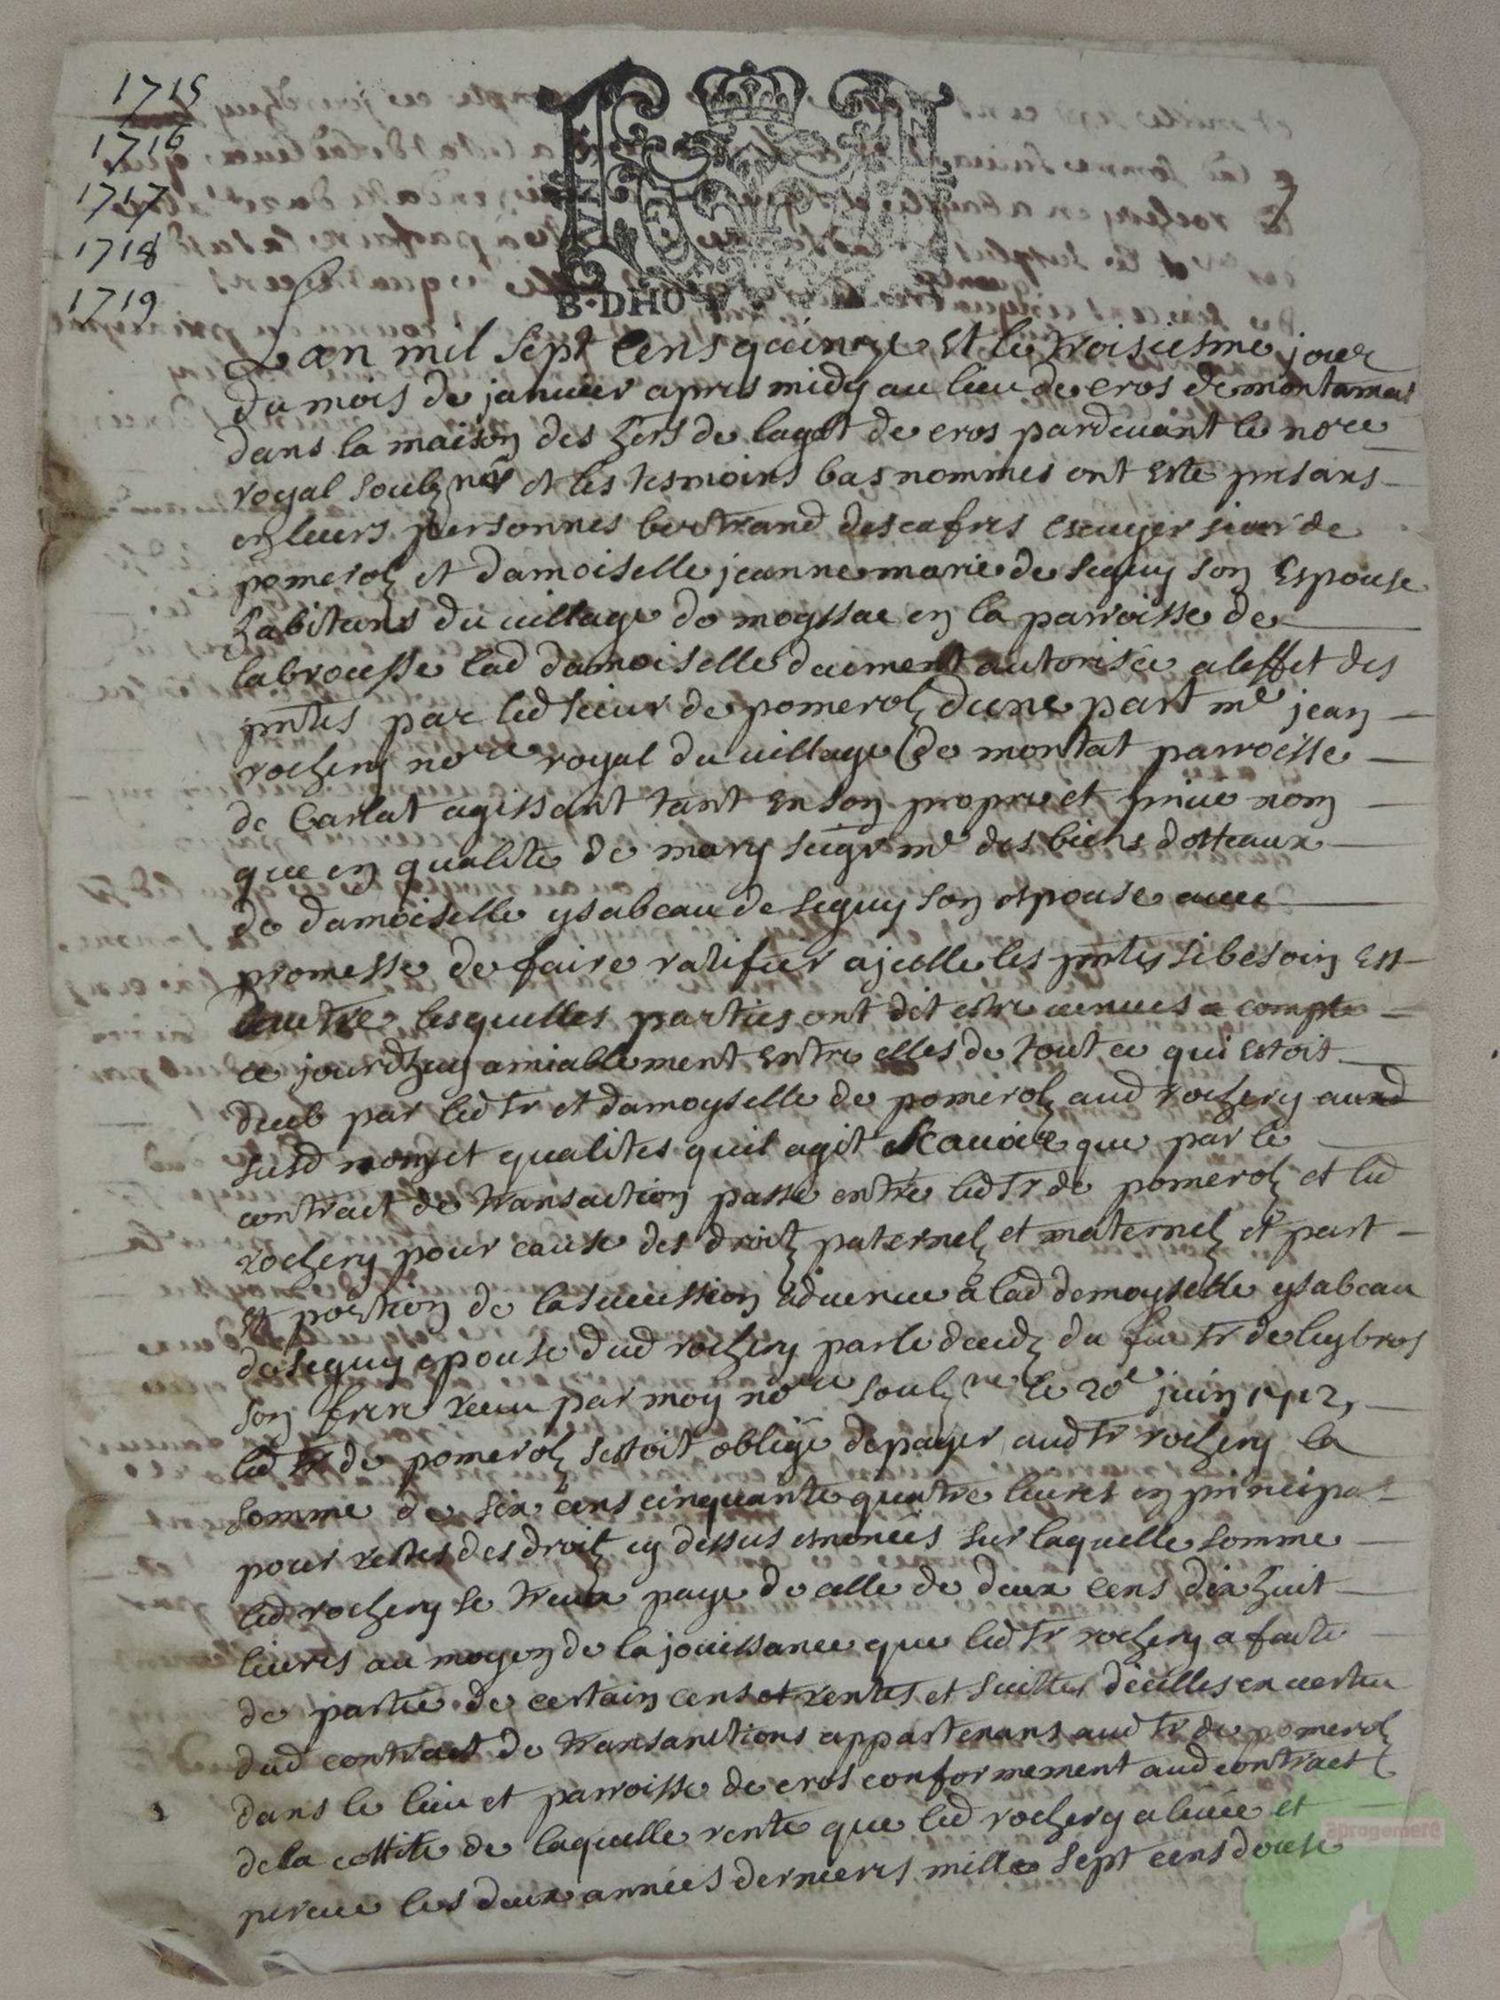 1715
1716
1717
1718
1719
B·DHO
Lan mil sept cens quinze et le troisiesme jour
du mois de janvier apres midy au lieu de cros de montamat
dans la maison des hers de lagat de cros pardevant le nore
royal soubz né et les tesmoins bas nommes ont este presans
en leurs personnes bertrand descafres escuyer sieur de
pomerolz et damoiselle jeanne marie de seguy son espouse
habitans du village de moyssac en la parroisse de
labrousse lad damoiselle duement autorisée a leffet des
pntes par led sieur de pomerolz dune part me jean
rochery nore royal du village de montat parroisse
de Carlat agissant tant en son propre et privé nom
que en qualite de mary seigr me des biens dotteaux
de damoiselle ysabeau de seguy son espouse avec
promesse de faire ratifier a jcelle les pntes si besoin est
dautre lesquelles parties ont dit estre venues a compte
ce jourdhuy amiablement entre elles de tout ce qui estoit
deub par led sr et damoyselle de pomerolz aud rochery aud
susd nom et qualites quil agit Scavoir que par le
contract de transaction passé entre led sr de pomerolz et led
rochery pour cause des droitz paternelz et maternelz et part
et portion de la sucession advenue a lad demoyselle ysabeau
de seguy epouse dud rochery par le decedz du feu sr de leybros
son frere receu par moy nore soubz né le 20e juin 1712,
led sr de pomerolz sestoit obligé de payer aud sr rochery la
somme de six cens cinquante quatre livres en principal
pour restes des droitz cy dessus enoncés sur laquelle somme
led rochery se treuve payé de celle de deux cens dix huit
livres au moyen de la jouissance que led sr rochery a faite
de partie de certain cens et rentes et suittes dicelles en vertu
dud contract de transanctions appartenans aud sr de pomerolz
dans le lieu et parroisse de cros conformement aud contract
de la cottite de laquelle rente que led rochery a levée et
perceue les deux années dernieres mille sept cens douse
aprogemere